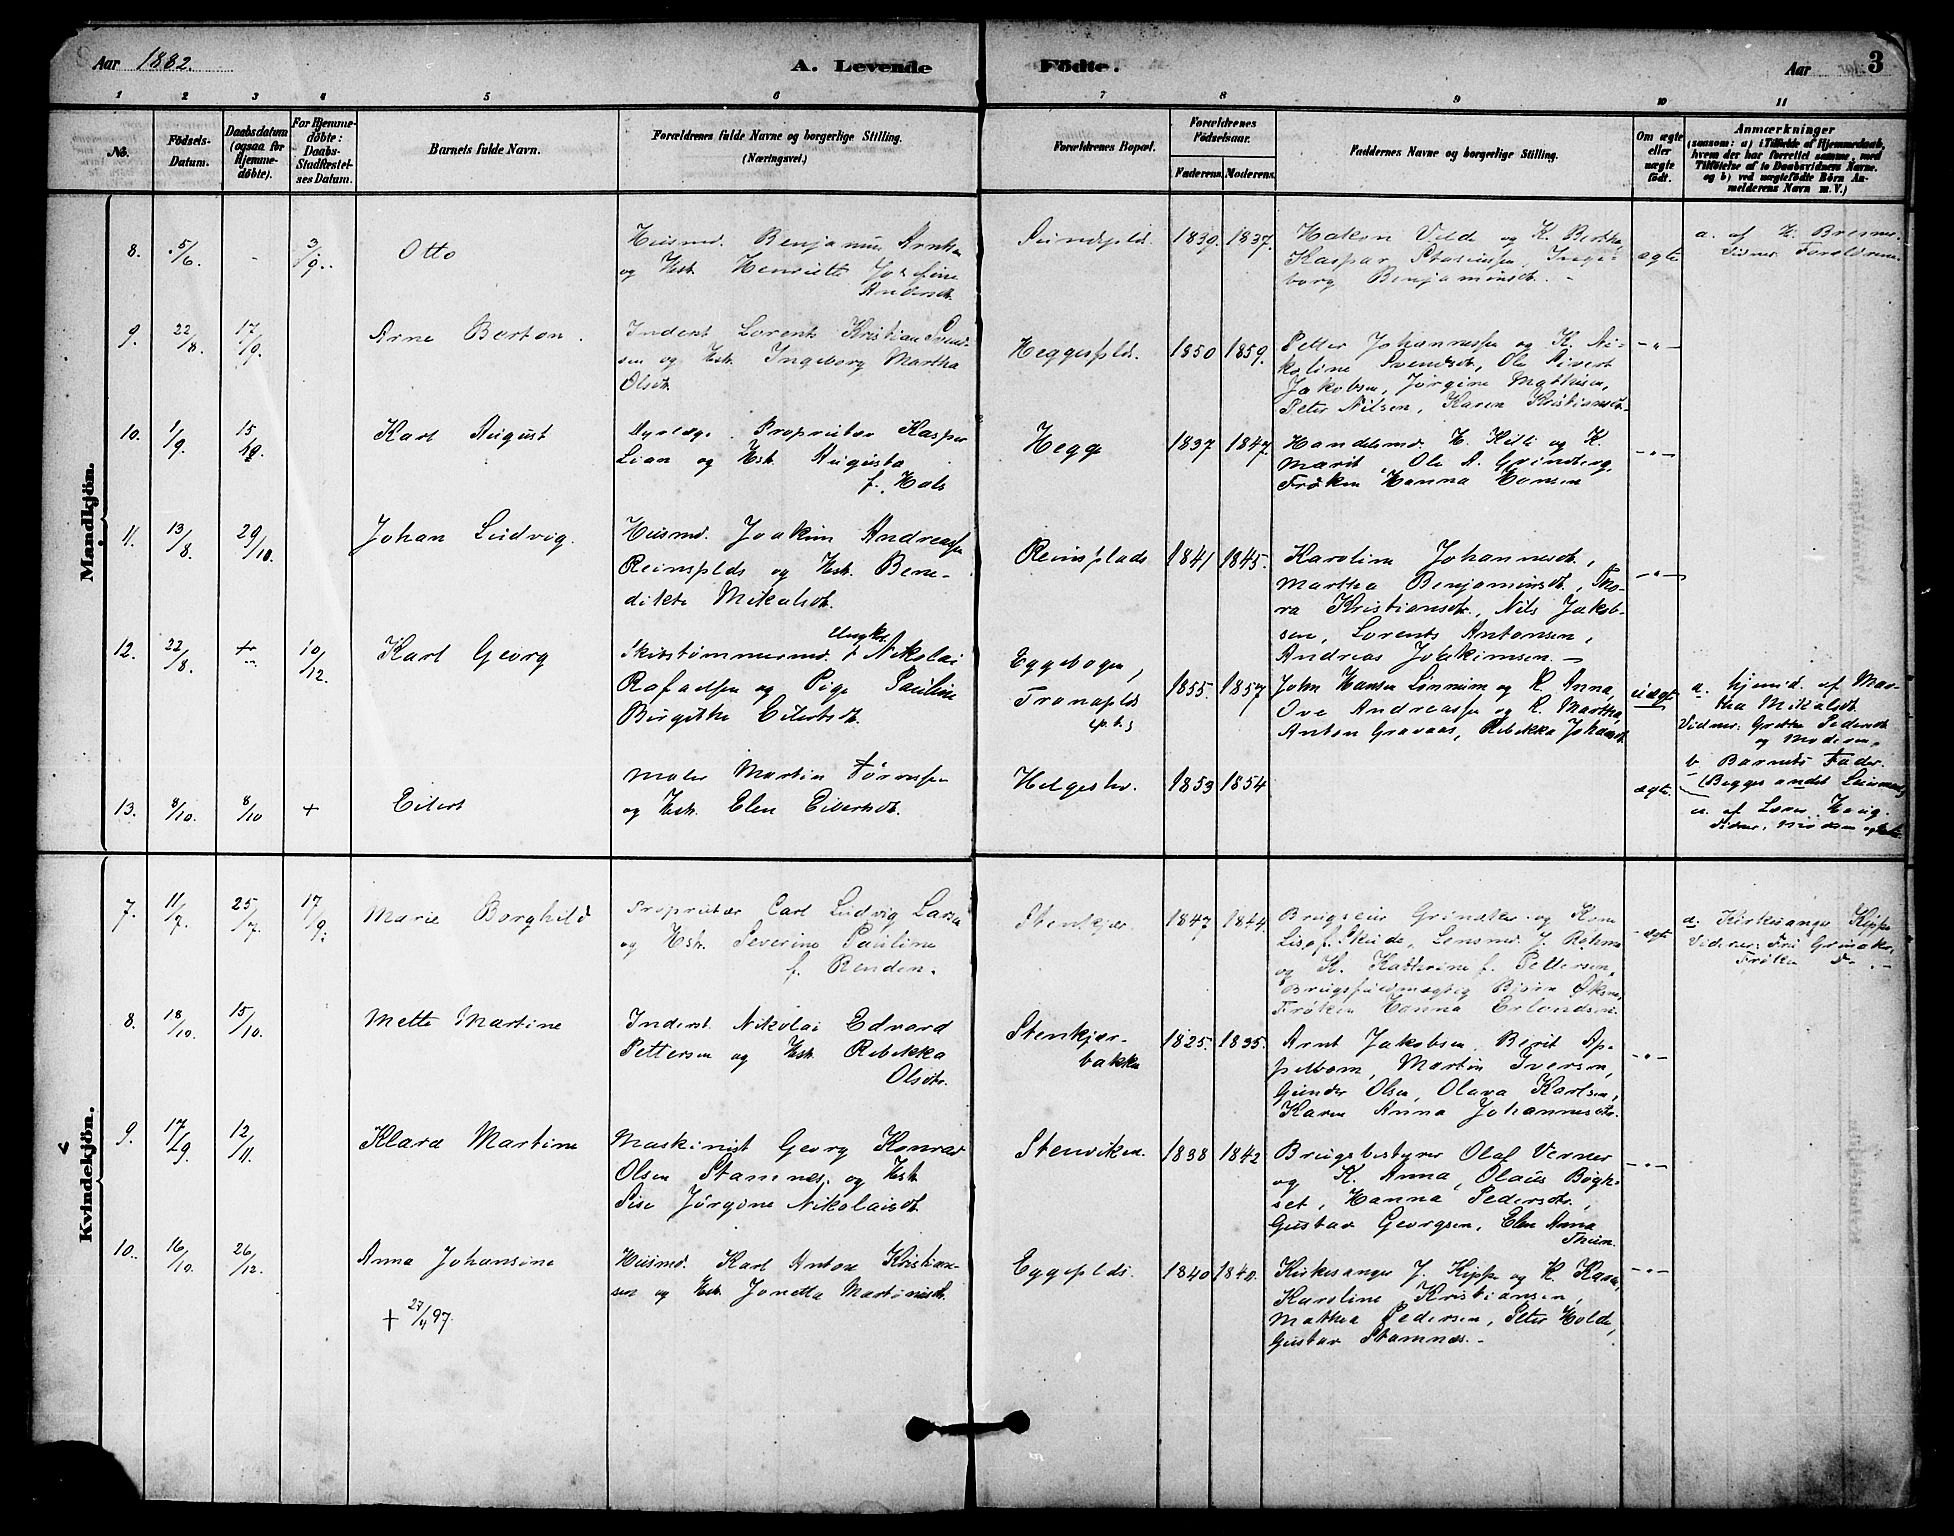 Aar 1882. A. Levende Födte. Aar 3
1 2 3 4 5 6 7 8 9 10 11
No. Födsels-Datum. Daabsdatum (ogsaa for Hjemme-døbte). For Hjemme-døbte: Daabs-Stadfæstel-ses Datum. Barnets fulde Navn. Forældrenes fulde Navne og borgerlige Stilling. (Næringsvei.) Forældrenes Bopæl. Forældrenes Födselsaar. Faderens. Moderens. Faddernes Navne og borgerlige Stilling. Om ægte eller uægte födt. Anmærkninger (saasom: a) i Tilfælde af Hjemmedaab, hvem der har forrettet samme, med Tilföielse af to Daabsvidners Navne, og b) ved uægtefödte Börn Anmelderens Navn m. V.)
Mandkjön.
8. 5/6. - 3/9. Otto
Husmd. Benjamin
og Hst. Henriette Josefine
Andersdt.
Sundspld. 1839. 1837.
Haken Velde og K. Bertha,
Kaspar, Inge-
borg Benjaminsdt. -
ægte
a. af H.
Vidner: Forældrene
9. 22/8. 17/9. Arne Barton.
Inderst Lorents Kristian Svend-
sen og Hst. Ingeborg Martha
Olsdt.
Heggespld. 1850 1859.
Petter Johannessen og K. Ni-
koline Svendsdt., Ole Sivert
Jakobsen, Jørgine Mathisen,
Peter Nilsen, Karen Kristiansdt.
-"-
10. 1/9. 15/10. Karl August
Dyrlæge, Proprietær Kasper
Lian og Hst. Augusta
f. Hals
Hegge 1837 1847.
Handelsmd. H. og K.
Marit, Ole A. Grindberg,
Frøken Hanna Hansen
-"-
11. 13/8. 29/10. Johan Ludvig.
Husmd. Joakim Andreassen
Reinsplds og Hst. Bene-
dikte Mikalsdt.
Reinsplads 1841 1845.
Karoline Johannesdt.,
Martha Benjaminsdt., Tho-
ra Kristiansdt., Nils Jakob-
sen, Lorents Antonsen,
Andreas Joakimsen. -
-"-
12. 22/8. + 10/12. Karl Georg
Ungkr.
Skibstømmermd. Nikolai
Rafaelsen og Pige Pauline
Birgithe Eilertsdt.
Eggebogen,
Tranaplds
1855. 1857
John Hansen Linnum og K. Anna,
Ove Andreassen og K. Martha,
Anton Gravaas, Rebekka Johansdt.
uægte
a. hjemd. af Mar-
tha Mikalsdt.
Vidner: Grethe Pedersdt.
og Moderen.
b. Barnets Fader.
(Begges andet Leiermaal)
13. 8/10. 8/10 + Eilert
Maler Martin
og Hst. Elen Eilertsdt.
Helgeshv. 1853 1854
ægte.
a. af Lærer Haug.
Vidner: Moderen
Kvindekjön.
7. 11/7. 25/7. 17/9. Marie Borghild
Proprietær Carl Ludvig Larsen
og Hst. Severine Pauline
f. Renden.
Stenkjær 1847 1844.
Brugseier Grinaker og Kone
Lise f. Skude, Lensmd. J. Röhme
og K. Kathrine f. Pettersen,
Brugsfuldmægtig Bjarn
Frøken Hanna Erlandsen
ægte
a. Kirkesanger Kippe
Vidner: Fru Grinaker,
Frøken
8. 18/10. 15/10. Mette Martine
Inderst. Nikolai Edvard
Pettersen og Hst. Rebekka
Olsdt.
Stenkjær-
bakken
1825. 1835.
Arnt Jakobsen, Berit Ap-
pelbom, Martin Iversen,
Gunder Olsen, Olava Karlsen,
Karen Anna Johannesdt.
-"-
9. 17/9. 12/11. Klara Martine
Maskinist Georg Konrad
Olsen Stamnes, og Hst.
Sise Jørgine Nikolaisdt.
Stenviken. 1838 1842
Brugsbestyrer Olaf Verner
og K. Anna, Olaus Bøgh-
set, Hanna Pedersdt.,
Gustav Georgsen, Elen Anna
Thun.
-"-
10. 16/10. 26/12. Anna Johansine
+ 27/4 97.
Husmd. Karl Anton Kristian-
sen og Hst. Jonetta Martinusdt.
Eggeplds. 1840 1840.
Kirkesanger J. Kippe og K. Karen,
Karoline Kristiansen,
Mathea Pedersen, Peter Holde,
Gustav Stamnes. -
-"-